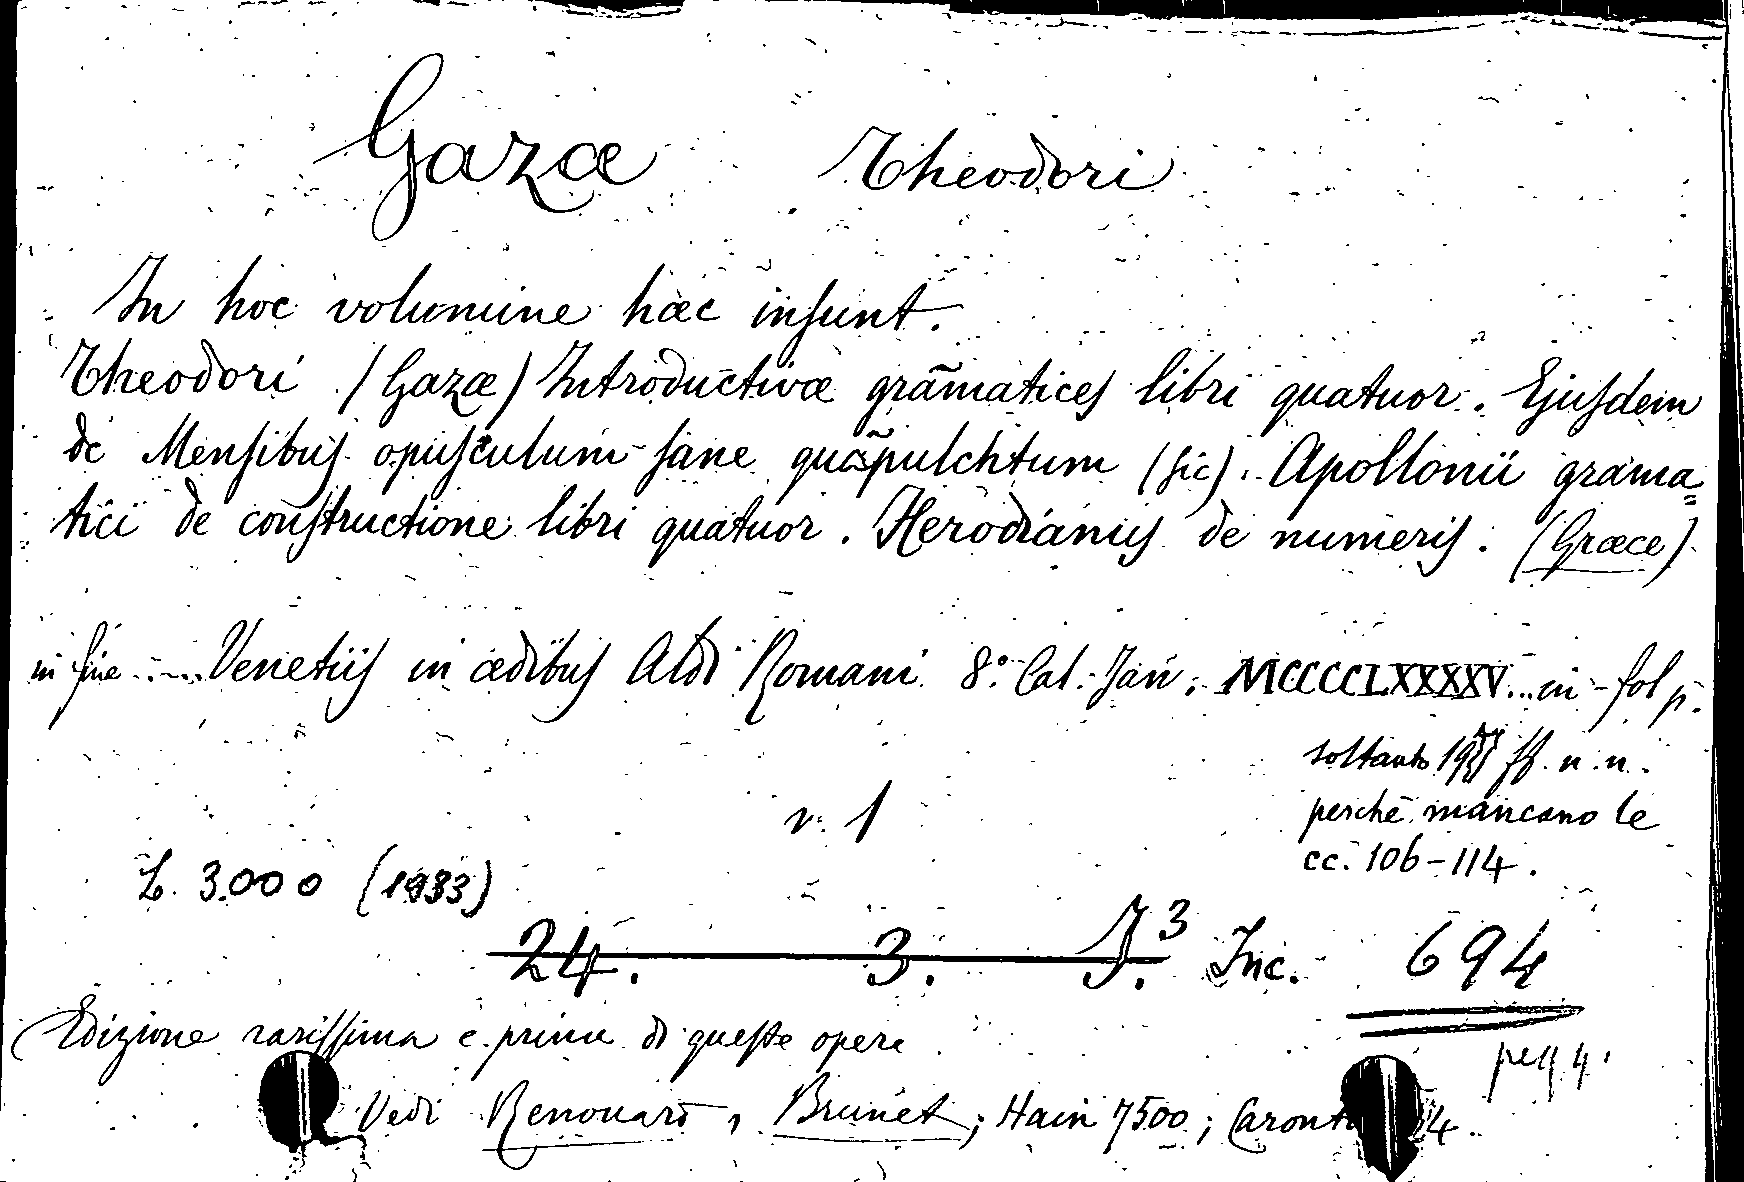 Gazæ Theodori
In hoc volumine hæc insunt.
Theodori (Gazæ) Introductivæ grãmatices libri quatuor. Ejusdem
de Mensibus opusculum sane quãpulchtum (sic). Apollonii grama=
tici de constructione libri quatuor. Herodianus de numeris. (Græce)
in fine .... Venetiis in ædibus Aldi Romani 8.° Cal. Jan. MCCCCLXXXXV... in-fol p.
soltanto ff. n. n.
perchè mancano le
cc. 106-114.
v. 1
L. 3.000 (1933)
24. 3. J.3 Inc. 694
Edizione rarissima e prima di queste opere
pell 4.
Vedi Renouard, Brunet; Hain 7500;